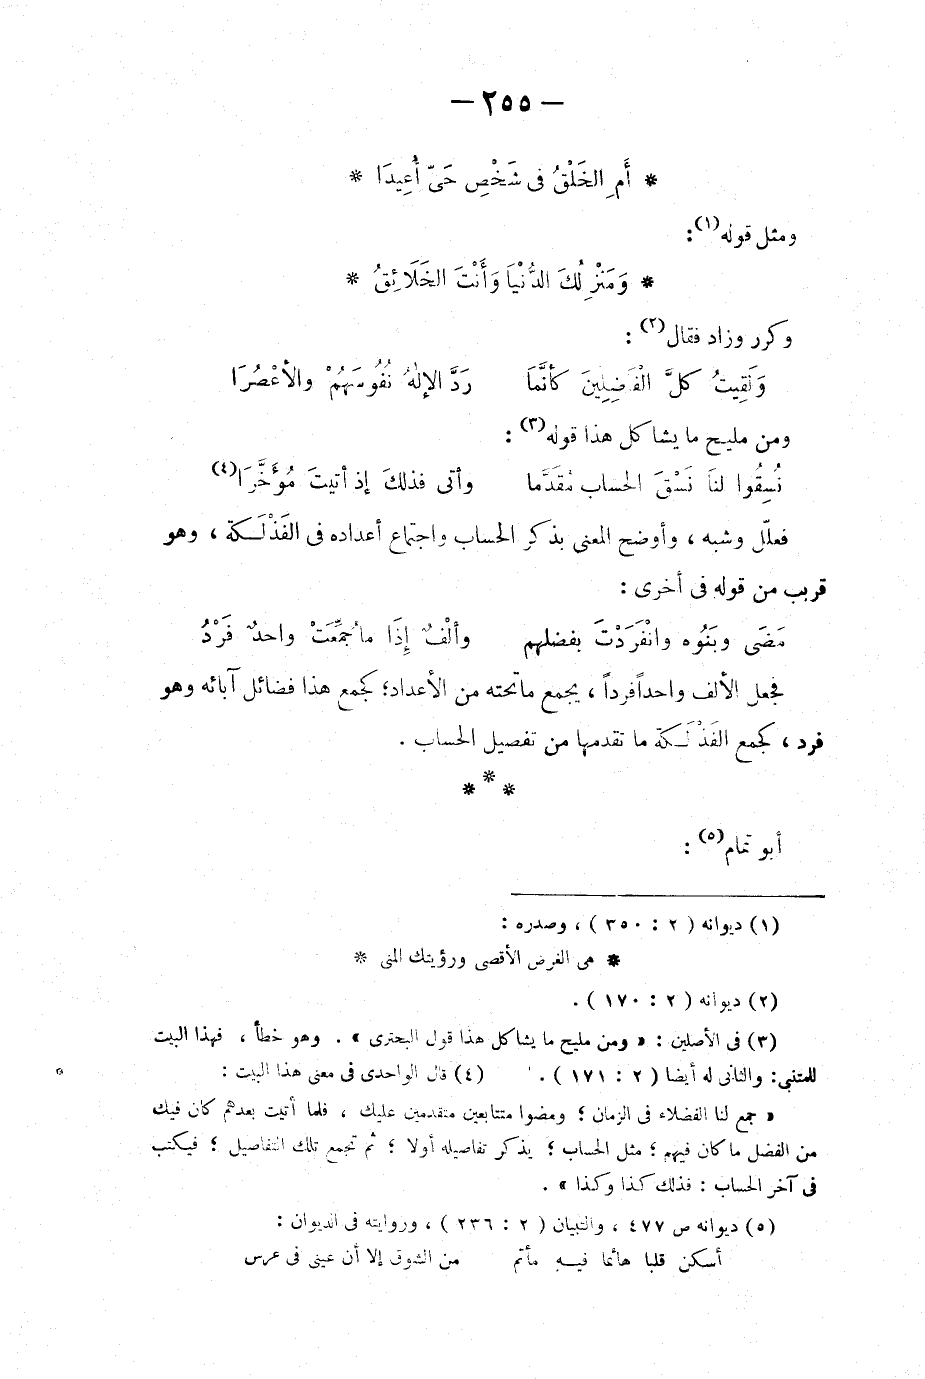 — ٢٥٥ —
* أَمِ الخَلْقُ فى شَخْصِ حَىّ أُعِيدَا *
ومثل قوله(١):
* وَمَنْزِلُكَ الدُّنْيَا وَأَنْتَ الخَلَائِقُ *
وكرر وزاد فقال(٢) :
وَلَقِيتُ كلَّ الْفَاضِلِينَ كأنَّمَا ردَّ الإلٰهُ نُفُوسَهُمْ والأعْصُرَا
ومن مليح ما يشاكل هذا قوله(٣) :
نُسِقُوا لنا نَسْقَ الحساب مُقَدَّما وأتى فذلكَ إذ أتيتَ مُؤَخَّرَا(٤)
فعلّل وشبه ، وأوضح المعنى بذكر الحساب واجتماع أعداده فى الفَذْلَكة ، وهو
قريب من قوله فى أخرى :
مَضَى وبَنُوه وانْفَرَدْتَ بفضلهم وألْفٌ إِذَا ما جُمِّعَتْ واحدٌ فَرْدُ
فجعل الألف واحداً فرداً ، يجمع ما تحته من الأعداد؛ كجمع هذا فضائل آبائه وهو
فرد ، كجمع الفَذْلَكة ما تقدمها من تفصيل الحساب .
* * *
أبو تمام(٥) :
(١) ديوانه ( ٢ : ٣٥٠ ) ، وصدره :
* هى الغرض الأقصى ورؤيتك المنى *
(٢) ديوانه ( ٢ : ١٧٠ ) .
(٣) فى الأصلين : « ومن مليح ما يشاكل هذا قول البحترى » . وهو خطأ ، فهذا البيت
للمتنبى: والثانى له أيضا ( ٢ : ١٧١ ) . (٤) قال الواحدى فى معنى هذا البيت :
« جمع لنا الفضلاء فى الزمان ؛ ومضوا متتابعين متقدمين عليك ، فلما أتيت بعدهم كان فيك
من الفضل ما كان فيهم ؛ مثل الحساب ؛ يذكر تفاصيله أولا ؛ ثم تجمع تلك التفاصيل ؛ فيكتب
فى آخر الحساب : فذلك كذا وكذا » .
(٥) ديوانه ص ٤٧٧ ، والتبيان ( ٢ : ٢٣٦ ) ، وروايته فى الديوان :
أسكن قلبا هائما فيه مأتم من الشوق إلا أن عينى فى عرس